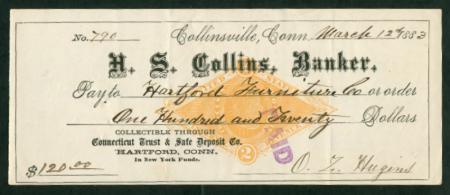 No. 790 Collinsville, Conn. March 12th 1883
H. S. Collins, Banker,
Pay to Hartford Furniture Co or order
One Hundred and Twenty Dollars
COLLECTIBLE THROUGH
Connecticut Trust & Safe Deposit Co.
HARTFORD, CONN.
In New York Funds.
$120.00
PAID
2